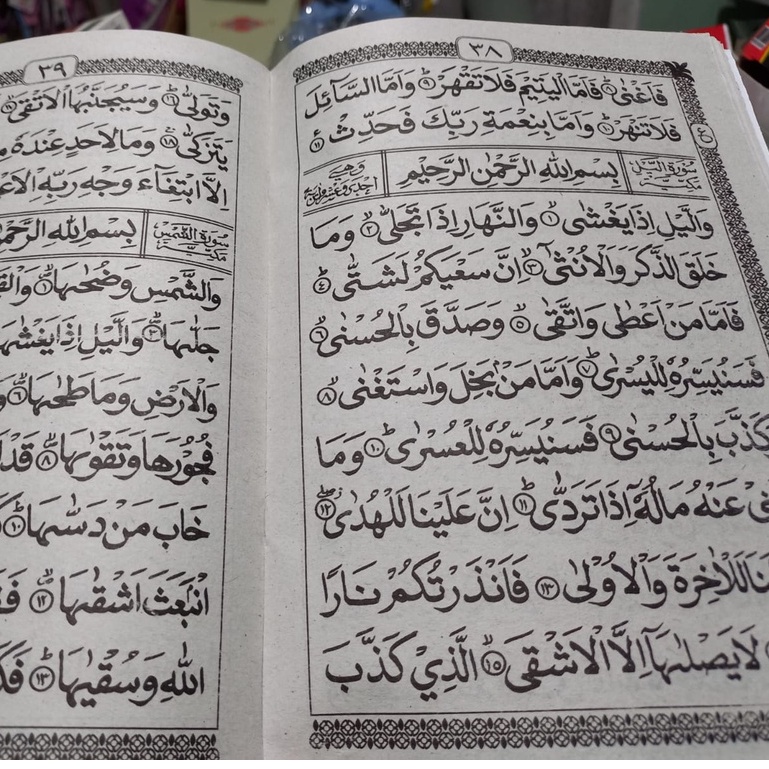 ٣٨
فَاَغْنٰى ۞ فَاَمَّا الْيَتِيْمَ فَلَا تَقْهَرْ ۞ وَاَمَّا السَّآئِلَ
فَلَا تَنْهَرْ ۞ وَاَمَّا بِنِعْمَةِ رَبِّكَ فَحَدِّثْ ۝۱۱
سُوْرَةُ الَّيْلِ مَكِّيَّةٌ
بِسْمِ اللّٰهِ الرَّحْمٰنِ الرَّحِيْمِ
وَالَّيْلِ اِذَا يَغْشٰى ۝۱ وَالنَّهَارِ اِذَا تَجَلّٰى ۝۲ وَمَا
خَلَقَ الذَّكَرَ وَالْاُنْثٰى ۝۳ اِنَّ سَعْيَكُمْ لَشَتّٰى ۝۴
فَاَمَّا مَنْ اَعْطٰى وَاتَّقٰى ۝۵ وَصَدَّقَ بِالْحُسْنٰى ۝۶
فَسَنُيَسِّرُهٗ لِلْيُسْرٰى ۝۷ وَاَمَّا مَنْ بَخِلَ وَاسْتَغْنٰى ۝۸
كَذَّبَ بِالْحُسْنٰى ۝۹ فَسَنُيَسِّرُهٗ لِلْعُسْرٰى ۝۱۰ وَمَا
عَنْهُ مَالُهٗٓ اِذَا تَرَدّٰى ۝۱۱ اِنَّ عَلَيْنَا لَلْهُدٰى ۝۱۲
لَلْاٰخِرَةَ وَالْاُوْلٰى ۝۱۳ فَاَنْذَرْتُكُمْ نَارًا
لَا يَصْلٰىهَآ اِلَّا الْاَشْقَى ۝۱۵ الَّذِيْ كَذَّبَ
٣٩
وَتَوَلّٰى ۝۱۶ وَسَيُجَنَّبُهَا الْاَتْقَى
يَتَزَكّٰى ۝۱۸ وَمَا لِاَحَدٍ عِنْدَهٗ
اِلَّا ابْتِغَآءَ وَجْهِ رَبِّهِ
سُوْرَةُ الشَّمْسِ مَكِّيَّةٌ
بِسْمِ اللّٰهِ
وَالشَّمْسِ وَضُحٰىهَا ۝۱
جَلّٰىهَا ۝۳ وَالَّيْلِ اِذَا
وَالْاَرْضِ وَمَا طَحٰىهَا ۝۶
فُجُوْرَهَا وَتَقْوٰىهَا ۝۸
خَابَ مَنْ دَسّٰىهَا ۝۱۰
انْۢبَعَثَ اَشْقٰىهَا ۝۱۲
اللّٰهِ وَسُقْيٰهَا ۝۱۳